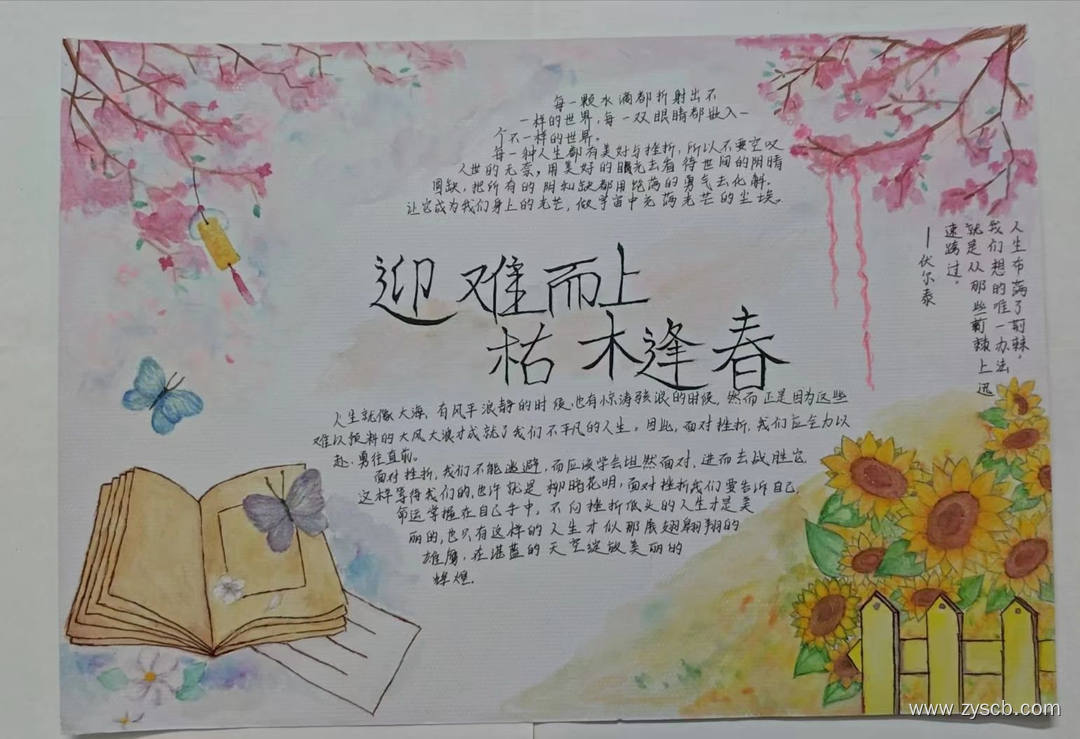 每一颗水滴都折射出不
一样的世界,每一双眼睛都融入一
个不一样的世界。
每一种人生都有美好与挫折,所以不要空叹
人世的无奈,用美好的眼光去看待世间的阴晴
圆缺,把所有的阴和缺都用饱满的勇气去化解.
让它成为我们身上的光芒,做宇宙中充满光芒的尘埃。
迎难而上
枯木逢春
人生布满了荆棘,
我们想的唯一办法
就是从那些荆棘上迅
速踏过。
—伏尔泰
人生就像大海,有风平浪静的时候,也有惊涛骇浪的时候,然而正是因为这些
难以预料的大风大浪才成就了我们不平凡的人生。因此,面对挫折,我们应全力以
赴,勇往直前。
面对挫折,我们不能逃避,而应该学会坦然面对,进而去战胜它.
这样等待我们的,也许就是柳暗花明,面对挫折我们要告诉自己,
命运掌握在自己手中,不向挫折低头的人生才是美
丽的,也只有这样的人生才似那展翅翱翔的
雄鹰,在湛蓝的天空绽放美丽的
辉煌.
www.zyscb.com